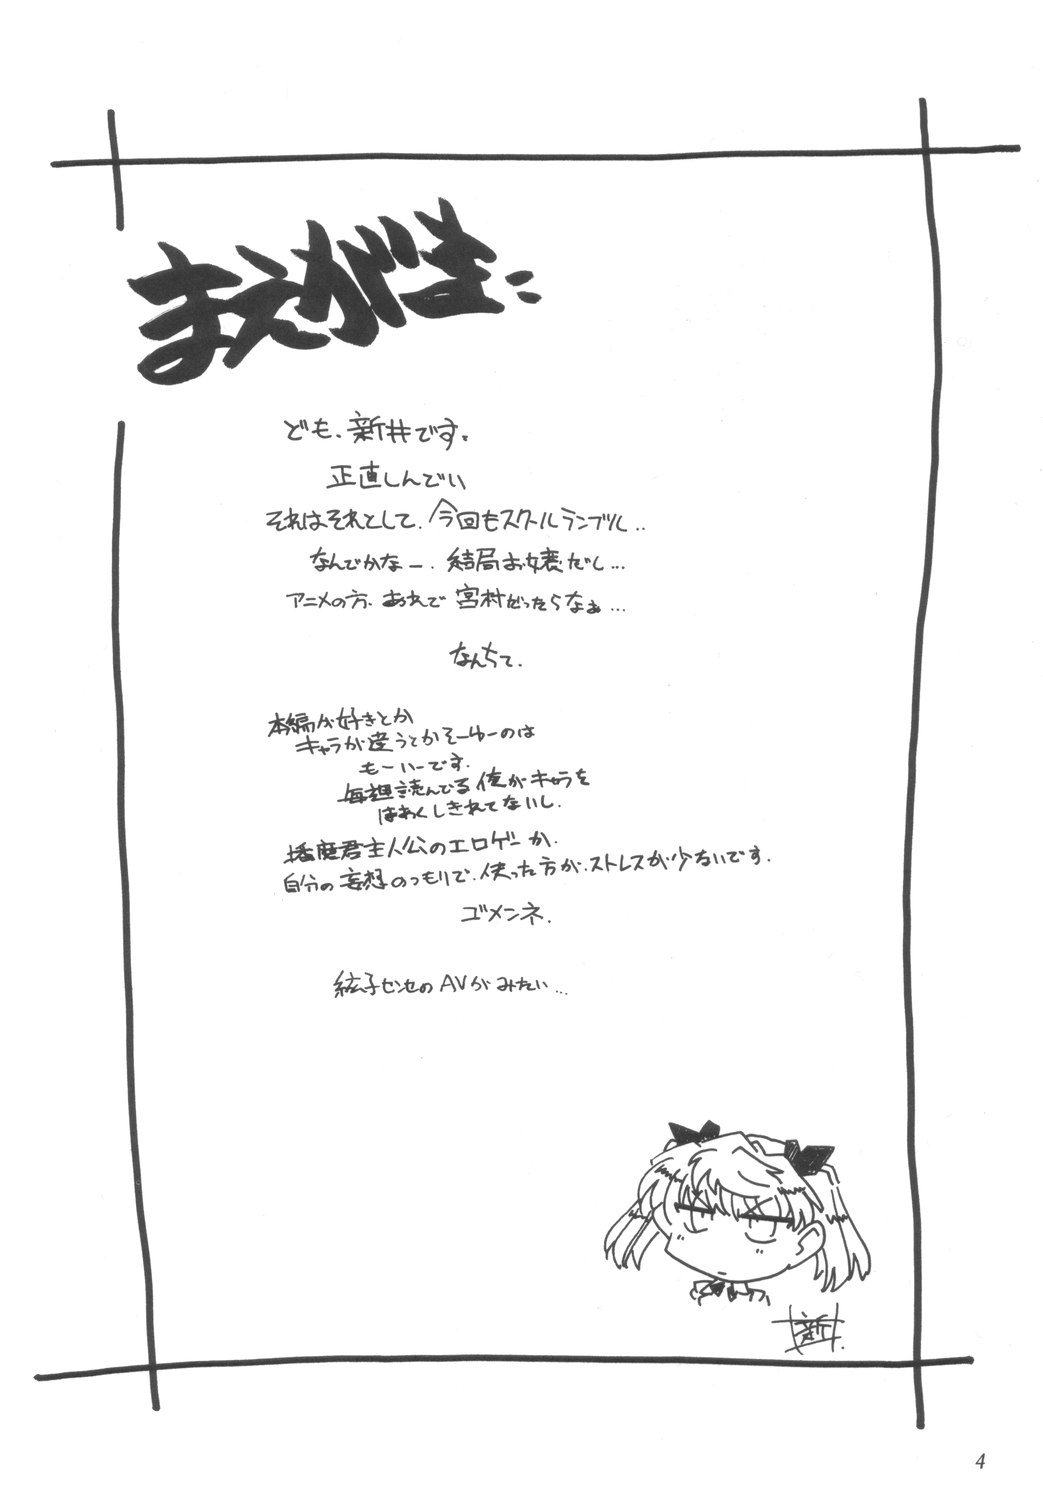 まえがき
ども、新井です。
正直しんでい
それはそれとして、今回もスクールランブル..
なんでかなー、結局お嬢だし...
アニメの方、あれで宮村だったらなぁ...
なんちて、
本編が好きとか
キャラが違うとかそーゆーのは
もーいーです。
毎週読んでる俺がキャラを
はあくしきれてないし、
播磨君主人公のエロゲーか、
自分の妄想のつもりで、使った方が、ストレスが少ないです。
ゴメンネ、
絃子センセのAVがみたい...
新井
4